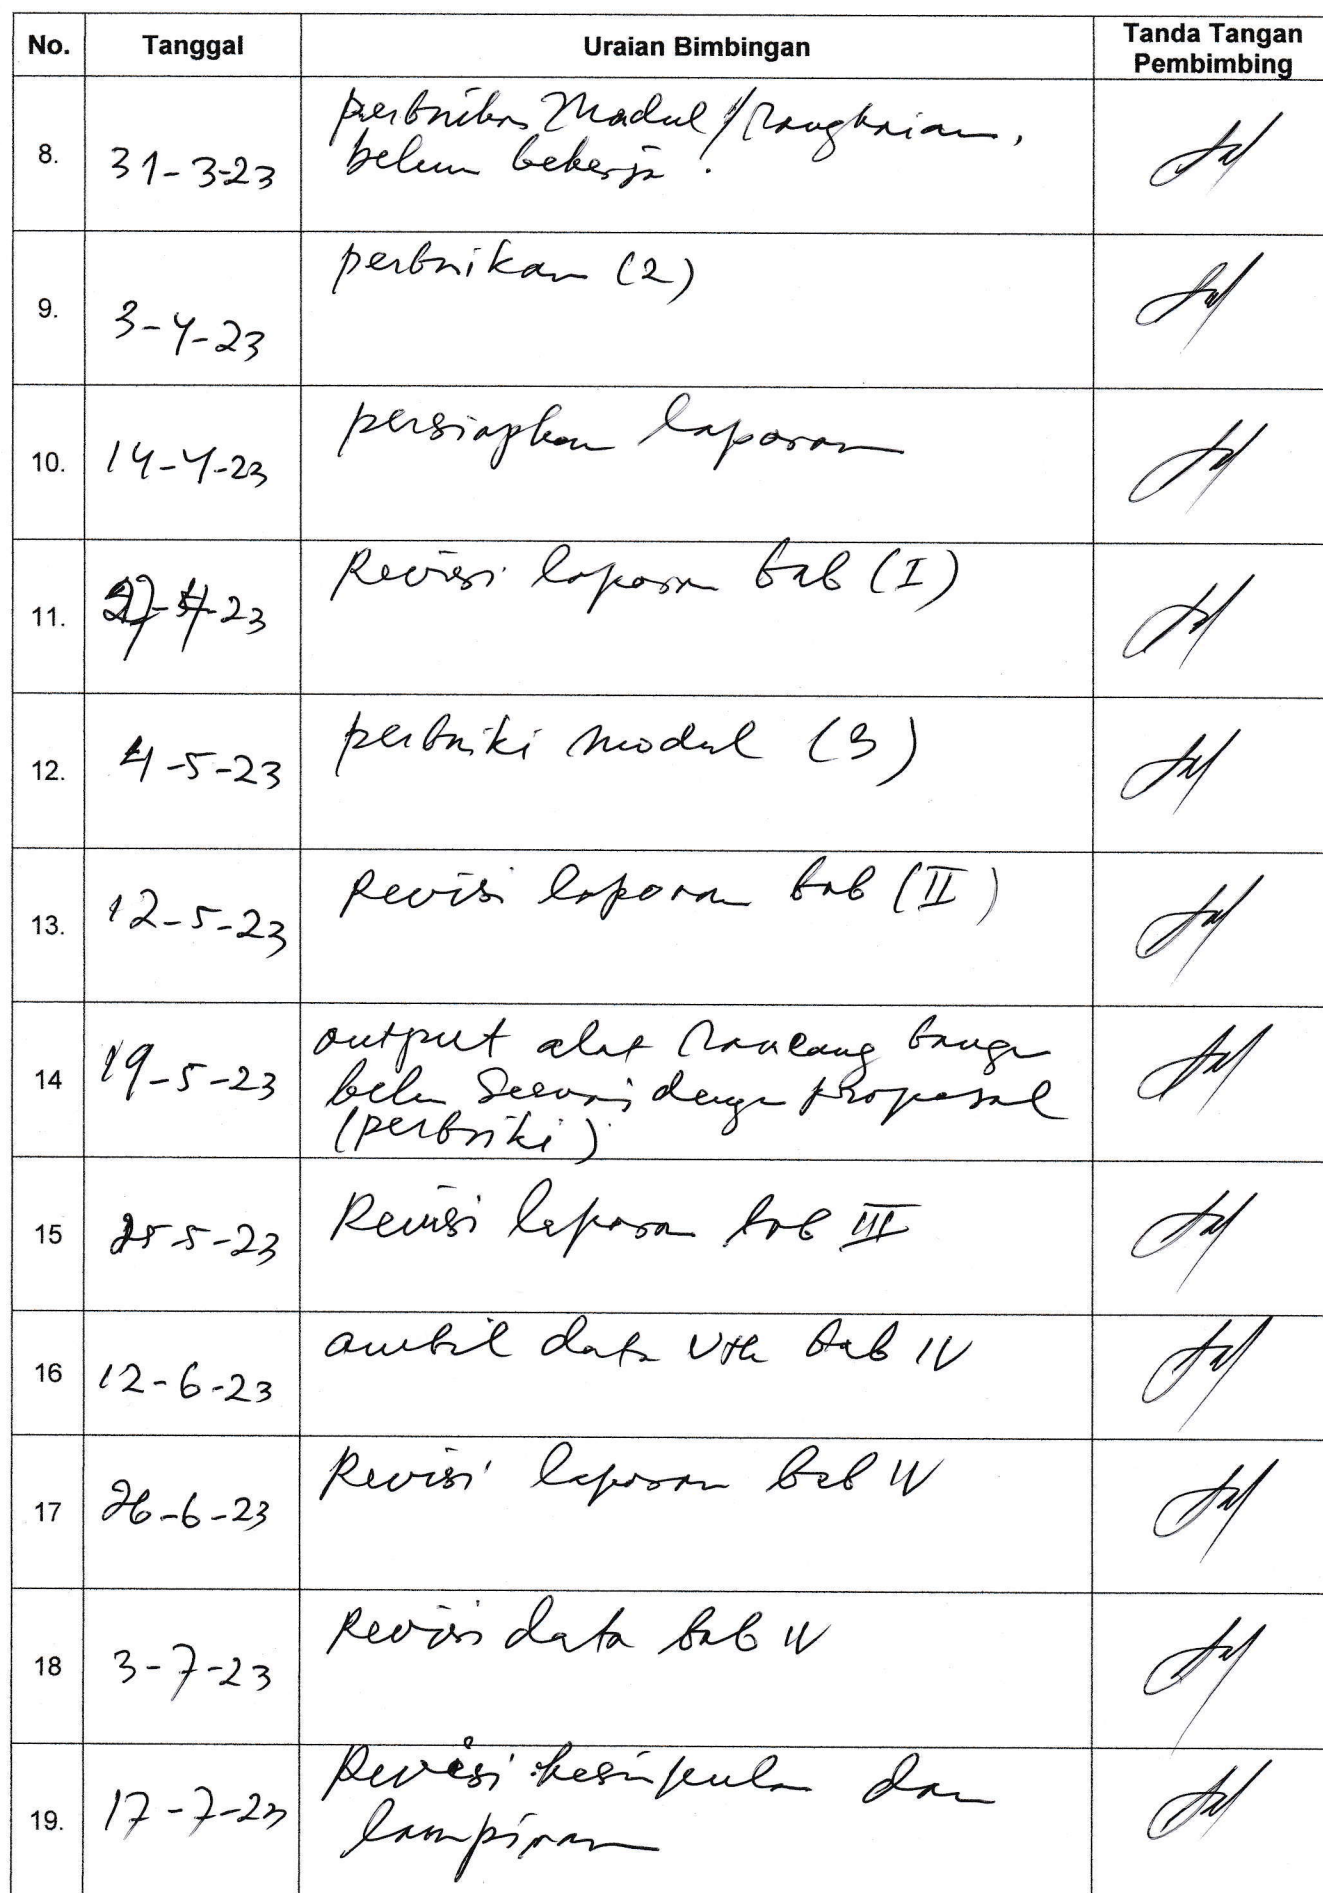 No. Tanggal Uraian Bimbingan Tanda Tangan
Pembimbing
8. 31-3-23 perbaikan Modul/Rangkaian.
belum bekerja.
9. 3-4-23 perbaikan (2)
10. 14-4-23 persiapkan laporan
11. 27-4-23 Revisi laporan bab (I)
12. 4-5-23 perbaiki modul (3)
13. 12-5-23 Revisi laporan bab (II)
14 19-5-23 output alat Rancang bangun
belum sesuai dengan proposal
(perbaiki)
15 25-5-23 Revisi laporan bab III
16 12-6-23 ambil data utk bab IV
17 26-6-23 Revisi laporan bab IV
18 3-7-23 Revisi data bab IV
19. 17-7-23 Revisi kesimpulan dan
lampiran